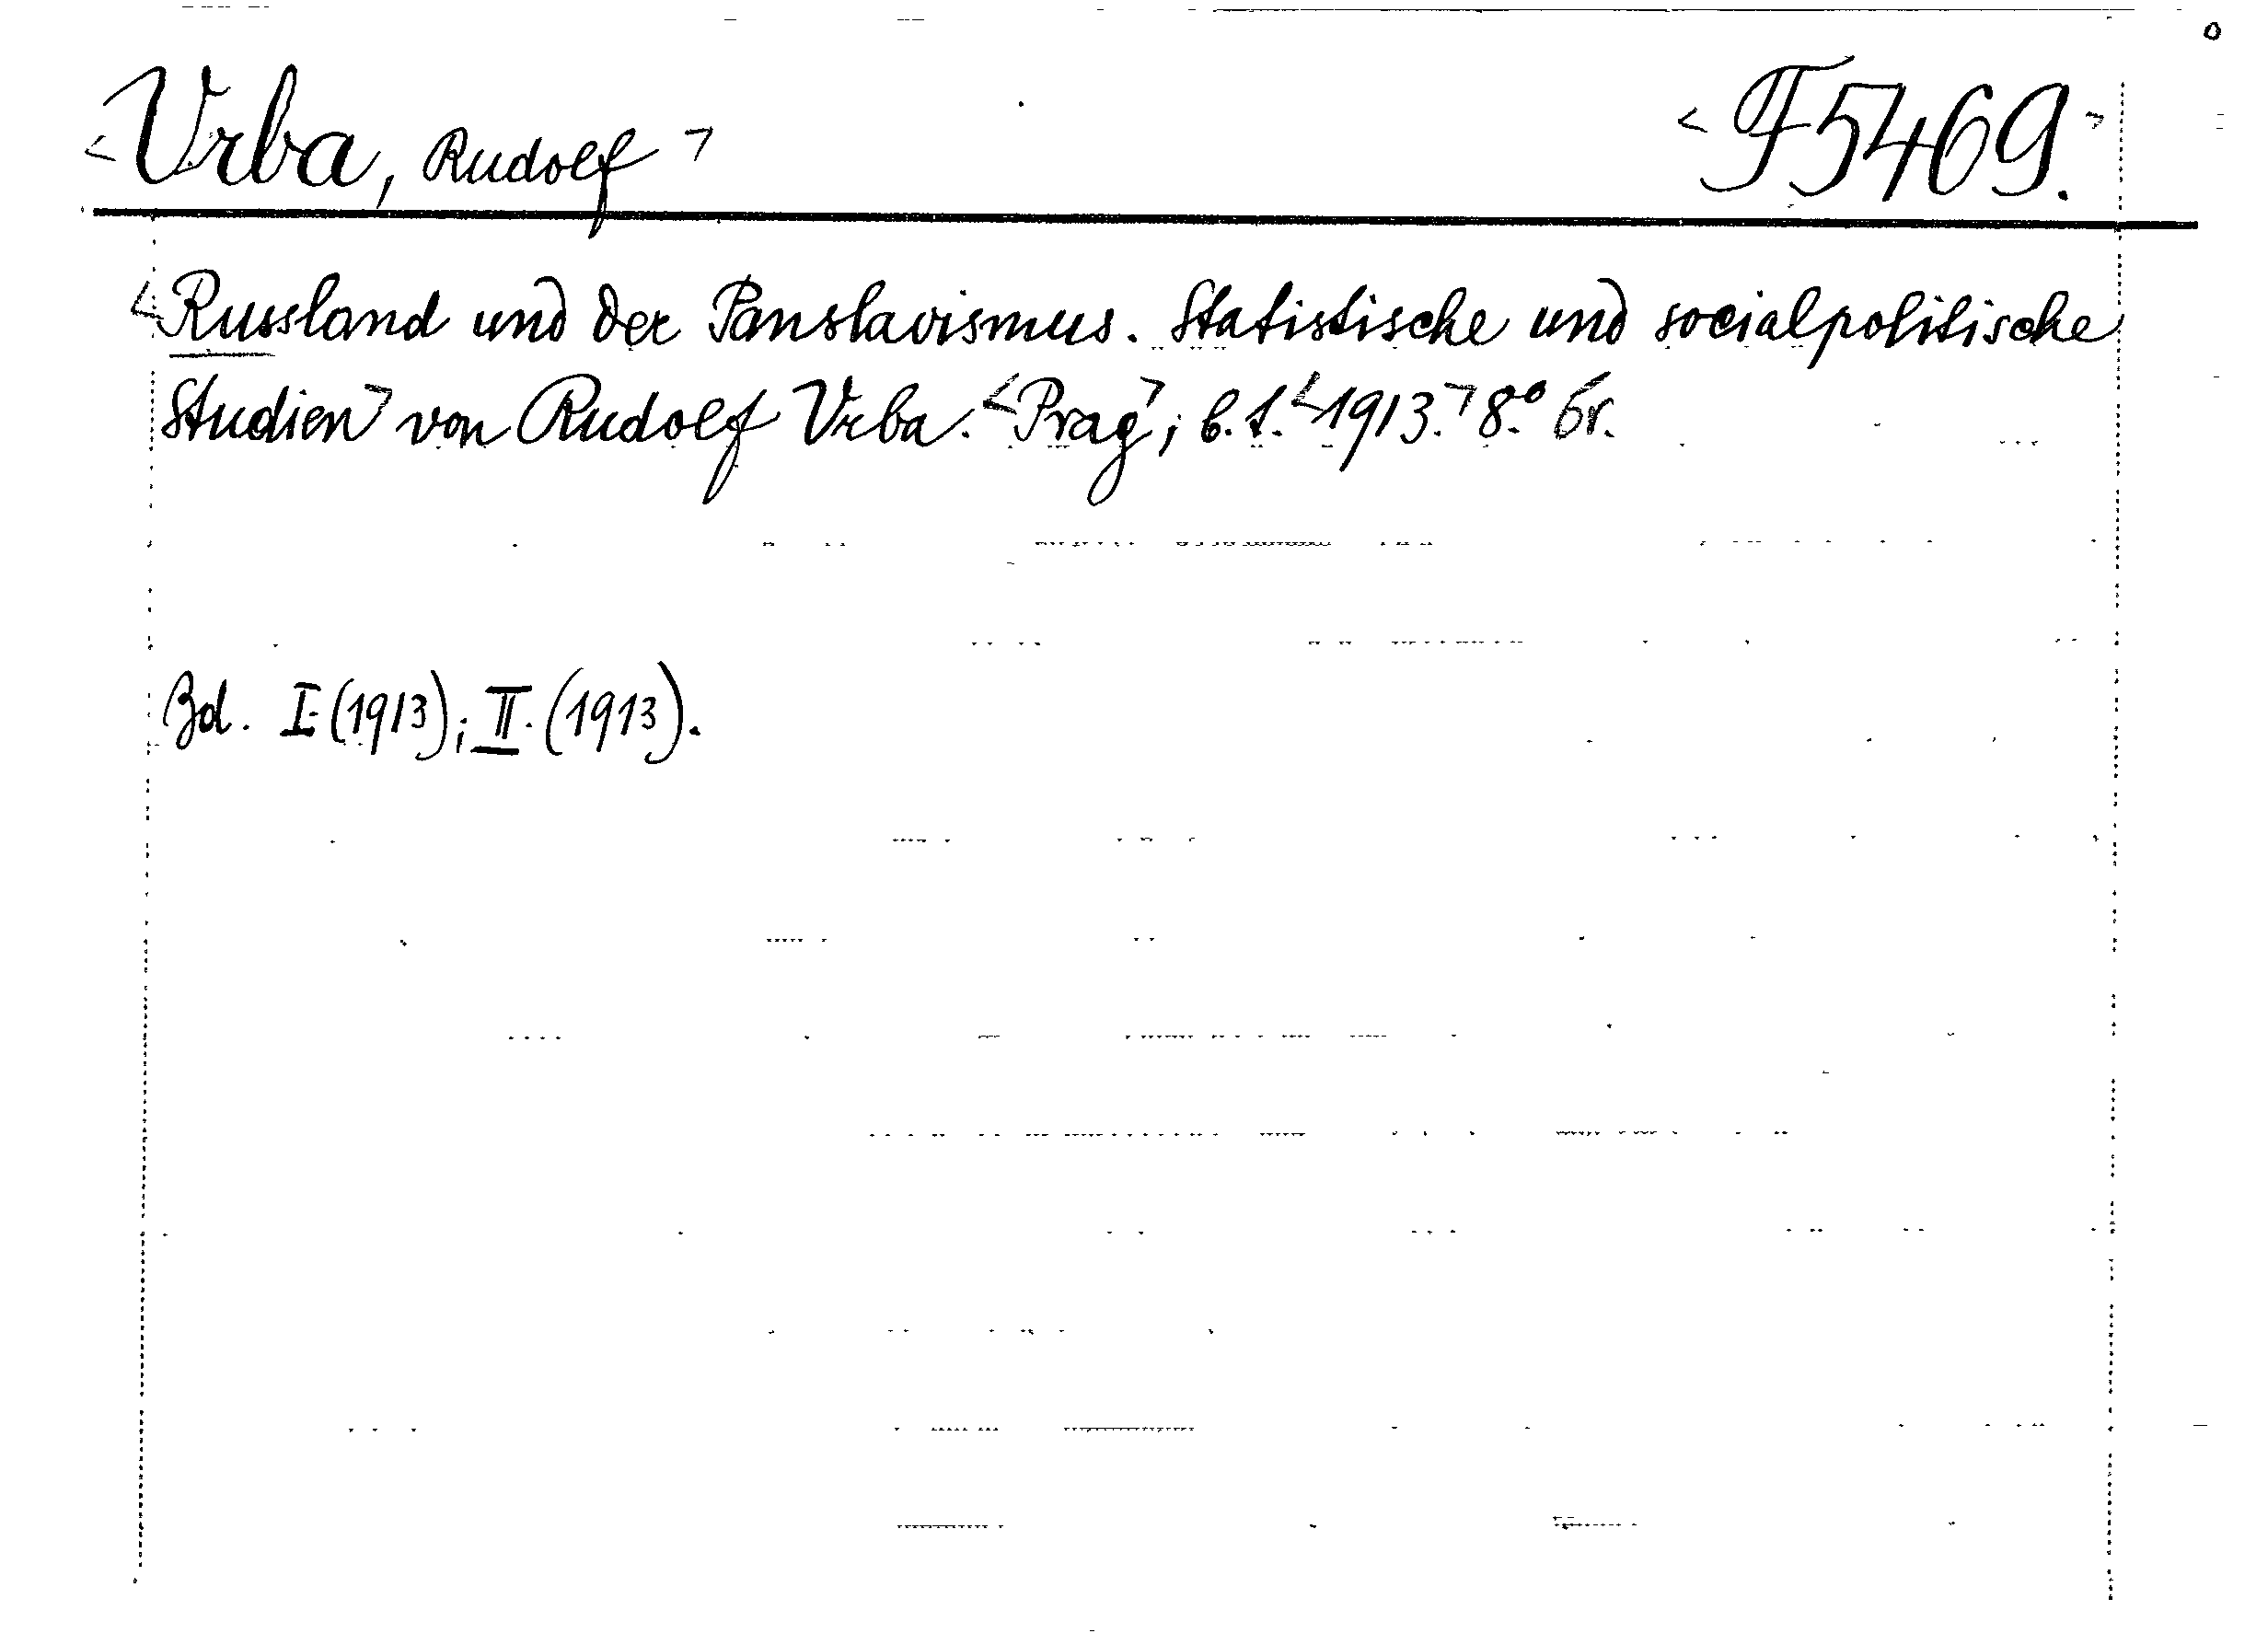 <Vrba, Rudolf> <F5469.>
<Russland und der Panslavismus. Statistische und socialpolitische
Studien> von Rudolf Vrba. <Prag>; b. t. <1913.> 8.° br.
Bd. I. (1913); II. (1913).